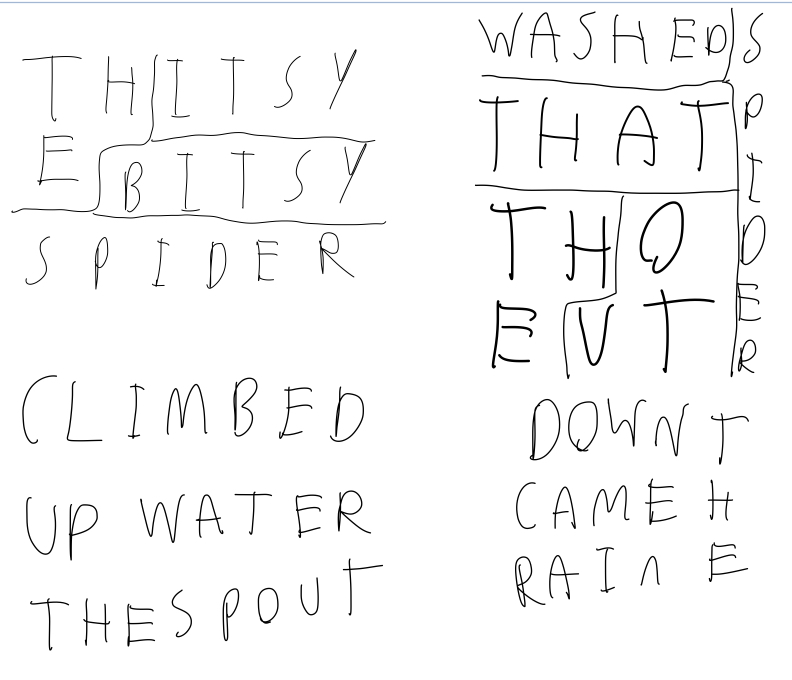 THITSY
EBITSY
SPIDER
CLIMBED
UP WATER
THESPOUT
WASHED
SPIDER
THAT
THO
EUT
DOWNT
CAMEH
RAINE